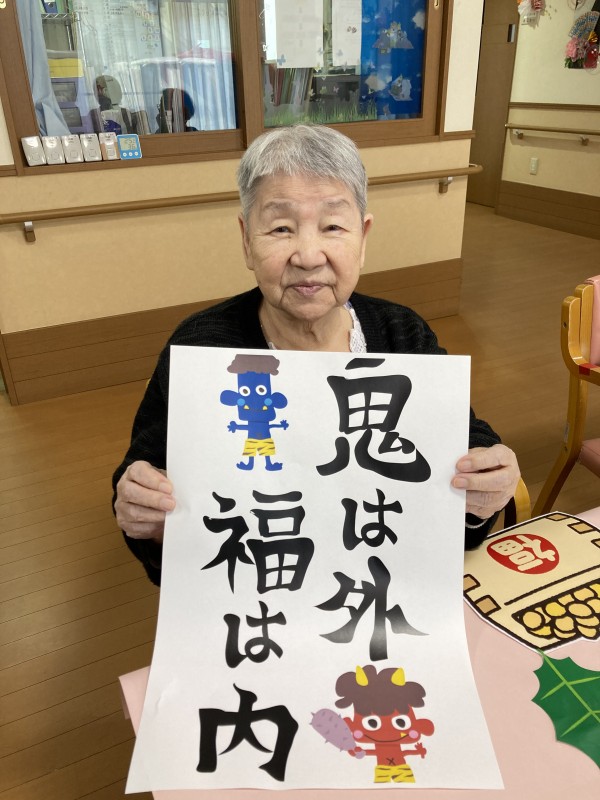 鬼は外
福は内
福